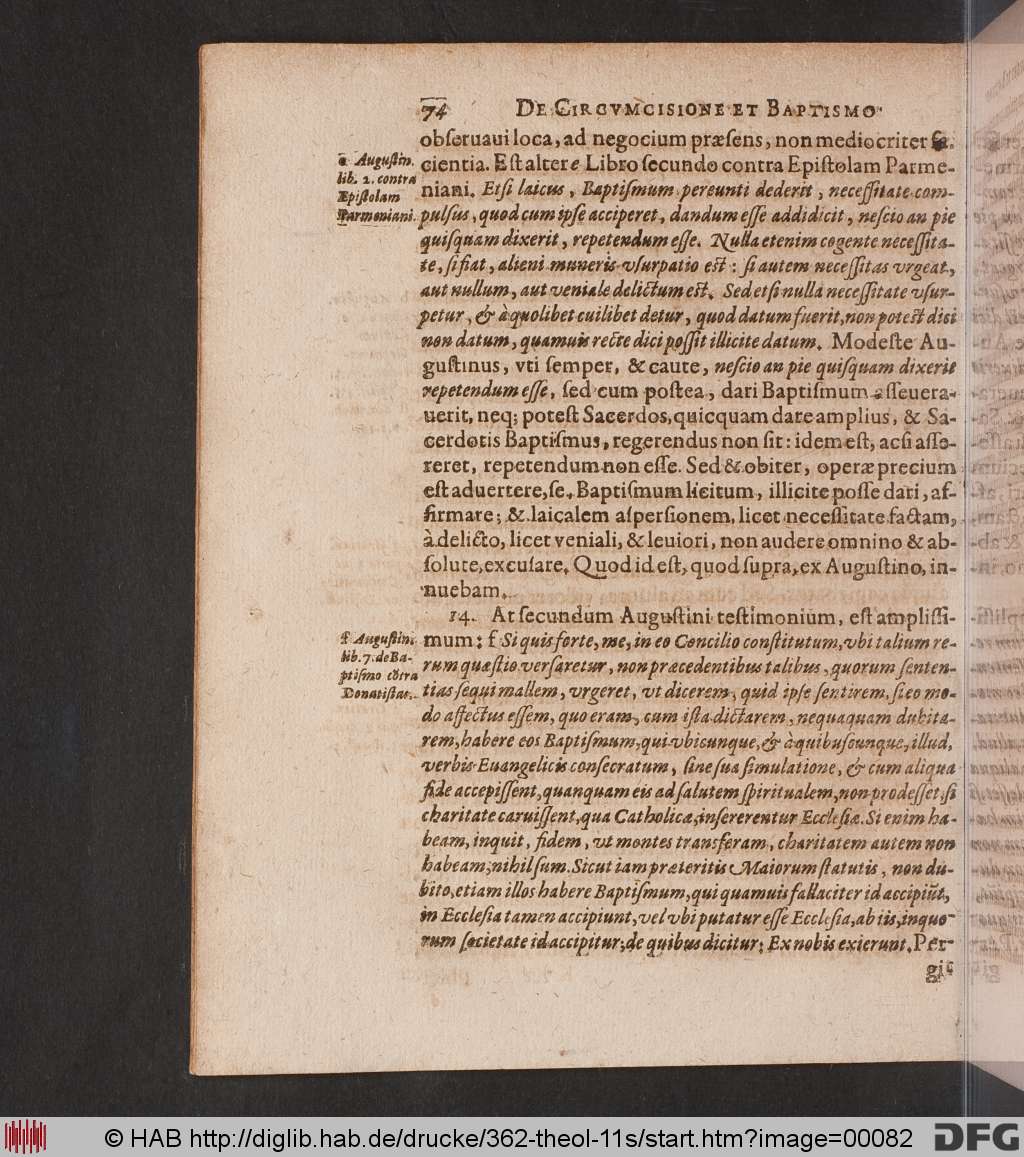 74 DE CIRCVMCISIONE ET BAPTISMO
obſeruaui loca, ad negocium præſens, non mediocriter fa-
cientia. Eſt alter e Libro ſecundo contra Epiſtolam Parme-
niani. Etſi laicus, Baptiſmum pereunti dederit, neceſſitate com-
pulſus, quod cum ipſe acciperet, dandum eſſe addidicit, neſcio an pie
quiſquam dixerit, repetendum eſſe. Nulla etenim cogente neceſſita-
te, ſi fiat, alieni muneris vſurpatio eſt: ſi autem neceſſitas vrgeat,
aut nullum, aut veniale delictum eſt. Sed etſi nulla neceſſitate vſur-
petur, & à quolibet cuilibet detur, quod datum fuerit, non poteſt dici
non datum, quamuis recte dici poſſit illicite datum. Modeſte Au-
guſtinus, vti ſemper, & caute, neſcio an pie quiſquam dixerit
repetendum eſſe, ſed cum poſtea, dari Baptiſmum aſſeuera-
uerit, neq; poteſt Sacerdos, quicquam dare amplius, & Sa-
cerdotis Baptiſmus, regerendus non ſit: idem eſt, ac ſi aſſe-
reret, repetendum non eſſe. Sed & obiter, operæ precium
eſt aduertere, ſe, Baptiſmum licitum, illicite poſſe dari, af-
firmare; & laicalem aſperſionem, licet neceſſitate factam,
à delicto, licet veniali, & leuiori, non audere omnino & ab-
ſolute, excuſare. Quod id eſt, quod ſupra, ex Auguſtino, in-
nuebam.
14. At ſecundum Auguſtini teſtimonium, eſt ampliſſi-
mum: f Si quis forte, me, in eo Concilio conſtitutum, vbi talium re-
rum quæſtio verſaretur, non præcedentibus talibus, quorum ſenten-
tias ſequi mallem, vrgeret, vt dicerem, quid ipſe ſentirem, ſi eo mo-
do affectus eſſem, quo eram, cum iſta dictarem, nequaquam dubita-
rem, habere eos Baptiſmum, qui vbicunque, & à quibuſcunque, illud,
verbis Euangelicis conſecratum, ſine ſua ſimulatione, & cum aliqua
fide accepiſſent, quanquam eis ad ſalutem ſpiritualem, non prodeſſet, ſi
charitate caruiſſent, qua Catholicæ, inſererentur Eccleſiæ. Si enim ha-
beam, inquit, fidem, vt montes transferam, charitatem autem non
habeam, nihil ſum. Sicut iam præteritis Maiorum ſtatutis, non du-
bito, etiam illos habere Baptiſmum, qui quamuis fallaciter id accipiūt,
in Eccleſia tamen accipiunt, vel vbi putatur eſſe Eccleſia, ab iis, in quo-
rum ſocietate id accipitur; de quibus dicitur: Ex nobis exierunt. Per-
giſ
e Auguſtin.
lib. 2. contra
Epiſtolam
Parmeniani.
f Auguſtin.
lib. 7. de Ba-
ptiſmo cōtra
Donatiſtas.
© HAB http://diglib.hab.de/drucke/362-theol-11s/start.htm?image=00082
DFG